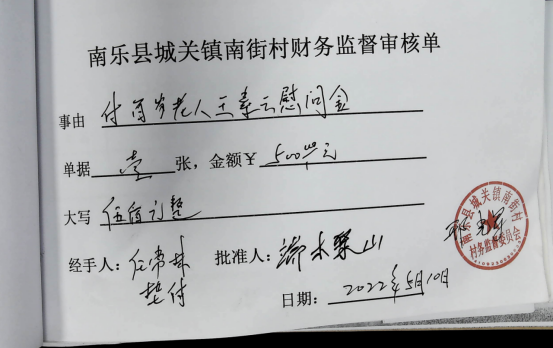 南乐县城关镇南街村财务监督审核单
事由 付百岁老人王秀云慰问金
单据 壹 张，金额￥ 500元
大写 伍佰元整
经手人： 批准人：
垫付
日期： 2022年5月10日
南乐县城关镇南街村
村务监督委员会